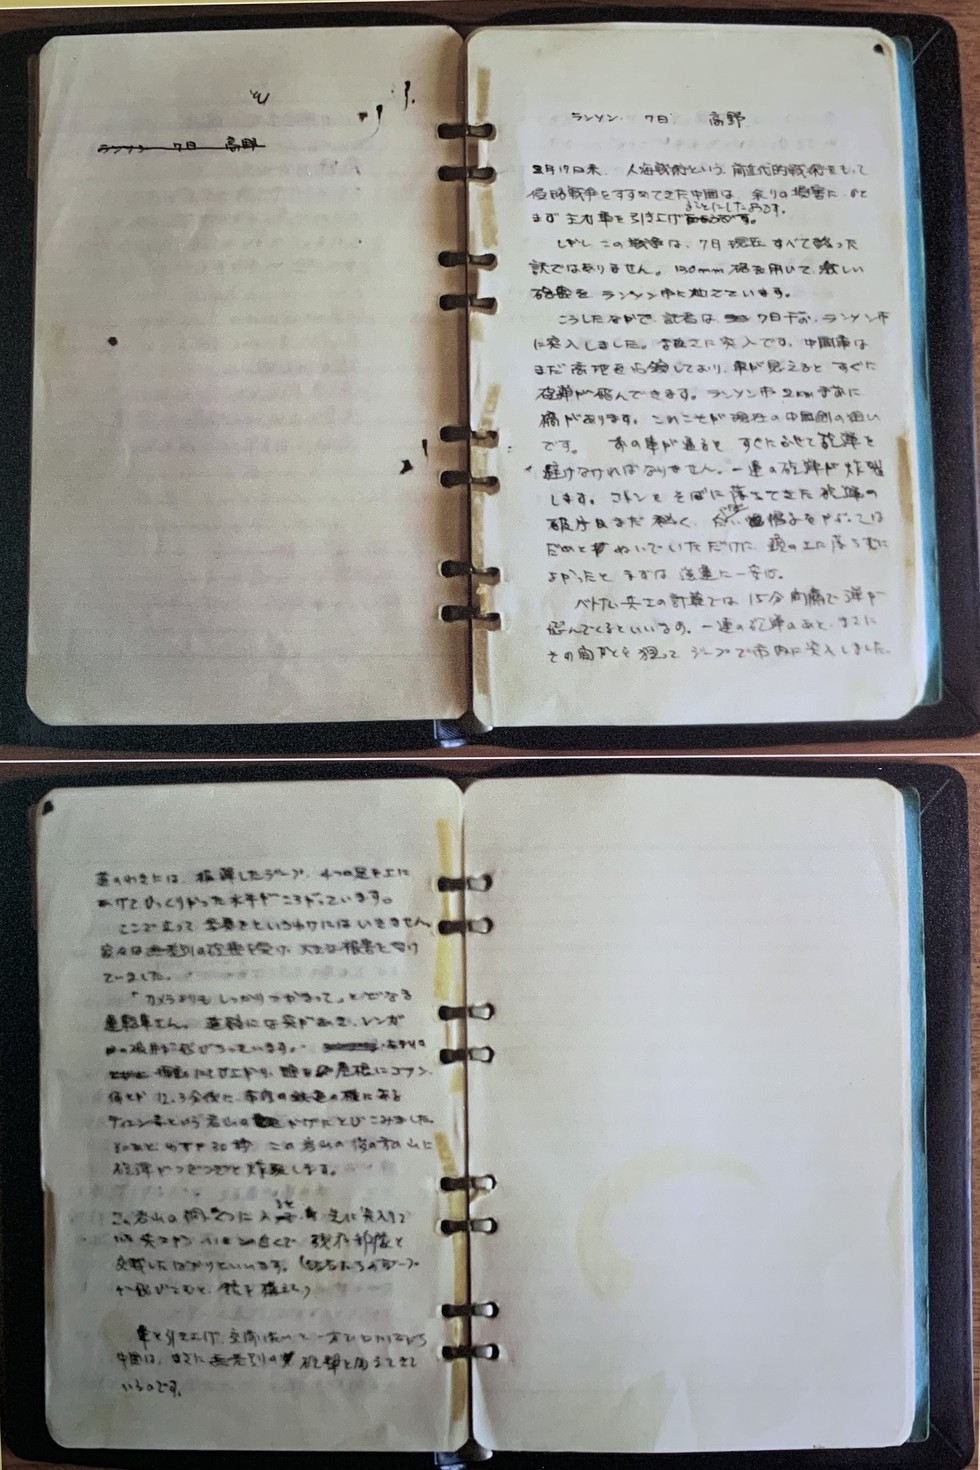 ランソン 7日 高野
ランソン. 7日 高野
2月17日来、人海戦術という、前近代的戦術をもって
侵略戦争をすすめてきた中国は、余りの損害に
まず主力軍を引き上げることにしたようです。
しかしこの戦争は、7日現在すべて終った
訳ではありません。130mm砲を用いて、激しい
砲撃をランソン市に加えています。
こうしたなかで、記者は 7日午前、ランソン市
に突入しました。まさに突入です。中国軍は
まだ高地を占領しており、車が見えるとすぐに
砲弾が飛んできます。ランソン市2km手前に
橋があります。これこそが現在の中国側の狙い
です。 車が通ると すぐにふせて砲弾を
避けなければなりません。一連の砲弾が炸裂
します。コトンとそばに落ちてきた砲弾の
破片はまだ熱く、 帽子をかぶっては
だめと ぬいでいただけに、頭の上に落ちずに
よかったと まずは 一安心。
ベトナム兵士の計算では 15分間隔で弾が
飛んでくるといいるの。一連の砲弾のあと、まさに
その間げきを狙って ジープで市内に突入しました。
道のわきには、被弾したジープ、4つの足を上に
あげてひっくりかった水牛がころがっています。
ここで立って写真をというわけにはいきません。
無差別の砲撃を受け、大きな被害を受け
ていました。
「カメラよりもしっかりつかまって」とどなる
運転手さん。道路には穴があき、レンガ
の破片が飛びちっています。
にとび上がり、頭を屋根にコツン。
何とか 12、3分後に、市内の鉄道の横にある
という岩山の かげにとびこみました。
そのあと わずか30秒 この岩山の後の に
砲弾がつぎつぎと炸裂します。
この岩山の洞くつに入ると、先に突入して
いた 近くで、残存部隊と
交戦したばかりといいます。(記者たちのジープ
が飛びこむと、銃を構えた)
軍を引き上げ、交渉したいと一方でいいながら
中国は、まさに無差別の 砲撃を加えてきて
いるのです。